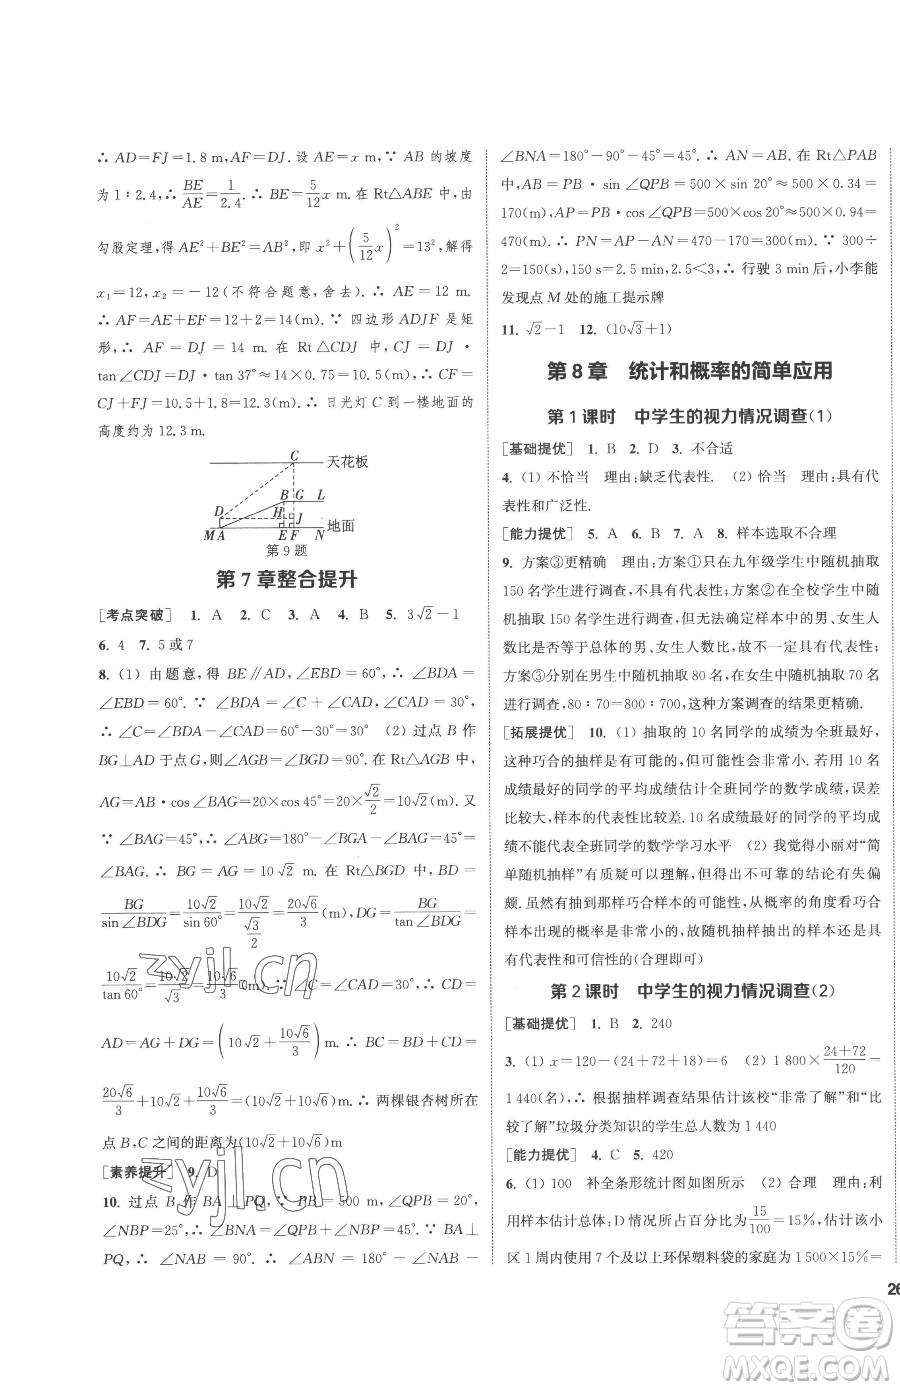 ∴ AD=FJ=1.8 m,AF=DJ.设 AE=x m,∵ AB 的坡度
为 1∶2.4,∴ BE/AE=1/2.4.∴ BE=5/12 x m. 在 Rt△ABE 中,由
勾股定理,得 AE²+BE²=AB²,即 x²+(5/12 x)²=13²,解得
x₁=12,x₂=-12(不符合题意,舍去).∴ AE=12 m.
∴ AF=AE+EF=12+2=14(m).∵ 四边形 ADJF 是矩
形,∴ AF=DJ=14 m.在 Rt△CDJ 中,CJ=DJ·
tan∠CDJ=DJ·tan 37°≈14×0.75=10.5(m).∴ CF=
CJ+FJ=10.5+1.8=12.3(m).∴ 日光灯 C 到一楼地面的
高度约为 12.3 m.
C 天花板
B G L
D H J
M A E F N 地面
第 9 题
第 7 章整合提升
[考点突破] 1. A 2. C 3. A 4. B 5. 3√2-1
6. 4 7. 5 或 7
8. (1) 由题意,得 BE∥AD,∠EBD=60°,∴ ∠BDA=
∠EBD=60°.∵ ∠BDA=∠C+∠CAD,∠CAD=30°,
∴ ∠C=∠BDA-∠CAD=60°-30°=30° (2) 过点 B 作
BG⊥AD 于点 G,则∠AGB=∠BGD=90°.在 Rt△AGB 中,
AG=AB·cos∠BAG=20×cos 45°=20×√2/2=10√2(m).又
∵ ∠BAG=45°,∴ ∠ABG=180°-∠BGA-∠BAG=45°=
∠BAG.∴ BG=AG=10√2 m.在 Rt△BGD 中,BD=
BG/sin∠BDG=10√2/sin 60°=10√2/(√3/2)=20√6/3(m),DG=BG/tan∠BDG=
10√2/tan 60°=10√2/√3=10√6/3(m).∵ ∠C=∠CAD=30°,∴ CD=
AD=AG+DG=(10√2+10√6/3)m.∴ BC=BD+CD=
20√6/3+10√2+10√6/3=(10√2+10√6)m.∴ 两棵银杏树所在
点 B,C 之间的距离为(10√2+10√6)m
[素养提升] 9. D
10. 过点 B 作 BA⊥PQ,∵ PB=500 m,∠QPB=20°,
∠NBP=25°,∴ ∠BNA=∠QPB+∠NBP=45°.∵ BA⊥
PQ,∴ ∠NAB=90°.∴ ∠ABN=180°-∠NAB-
∠BNA=180°-90°-45°=45°.∴ AN=AB.在 Rt△PAB
中,AB=PB·sin∠QPB=500×sin 20°≈500×0.34=
170(m),AP=PB·cos∠QPB=500×cos 20°≈500×0.94=
470(m).∴ PN=AP-AN=470-170=300(m).∵ 300÷
2=150(s),150 s=2.5 min,2.5<3,∴ 行驶 3 min 后,小李能
发现点 M 处的施工提示牌
11. √2-1 12. (10√3+1)
第 8 章 统计和概率的简单应用
第 1 课时 中学生的视力情况调查(1)
[基础提优] 1. B 2. D 3. 不合适
4. (1) 不恰当 理由:缺乏代表性. (2) 恰当 理由:具有代
表性和广泛性.
[能力提优] 5. A 6. B 7. A 8. 样本选取不合理
9. 方案③更精确 理由:方案①只在九年级学生中随机抽取
150 名学生进行调查,不具有代表性;方案②在全校学生中随
机抽取 150 名学生进行调查,但无法确定样本中的男、女生人
数比是否等于总体的男、女生人数比,可能具有一定片面性;
方案③分别在男生中随机抽取 80 名,在女生中随机抽取 70
名进行调查,80∶70=800∶700,这种方案调查更精确.
[拓展提优] 10. (1) 抽取的 10 名同学的成绩在全班最好,
这种巧合的抽样是有可能的,但可能性非常小,如果用这 10
名成绩最好的同学的平均成绩估计全班同学的数学成绩,误差
比较大,样本的代表性比较差. 10 名成绩最好的同学的平均成
绩不能代表全班同学的数学学习水平 (2) 我觉得小丽对“简
单随机抽样”有质疑可以理解,但得出不可靠的结论有失偏
颇.尽管有抽到极端样本的可能性,但从概率的角度看巧合
样本出现的概率是非常小的,故随机抽样抽出的样本还是具
有代表性和可信性的(合理即可)
第 2 课时 中学生的视力情况调查(2)
[基础提优] 1. B 2. 240
3. (1) x=120-(24+72+18)=6 (2) 1 800×(24+72)/120=
1 440(名),∴ 根据抽样调查结果估计该校“非常了解”和“比
较了解”垃圾分类知识的学生总人数为 1 440
[能力提优] 4. C 5. 420
6. (1) 100 补全条形统计图如图所示 (2) 合理 理由:利
用样本估计总体;D 情况所占百分比为15/100=15%,估计该小
区 1 周内使用 7 个及以上环保塑料袋的家庭为 1 500×15%=
26
zyjl.cn
zyjl.cn
答案圈
MXQE.COM